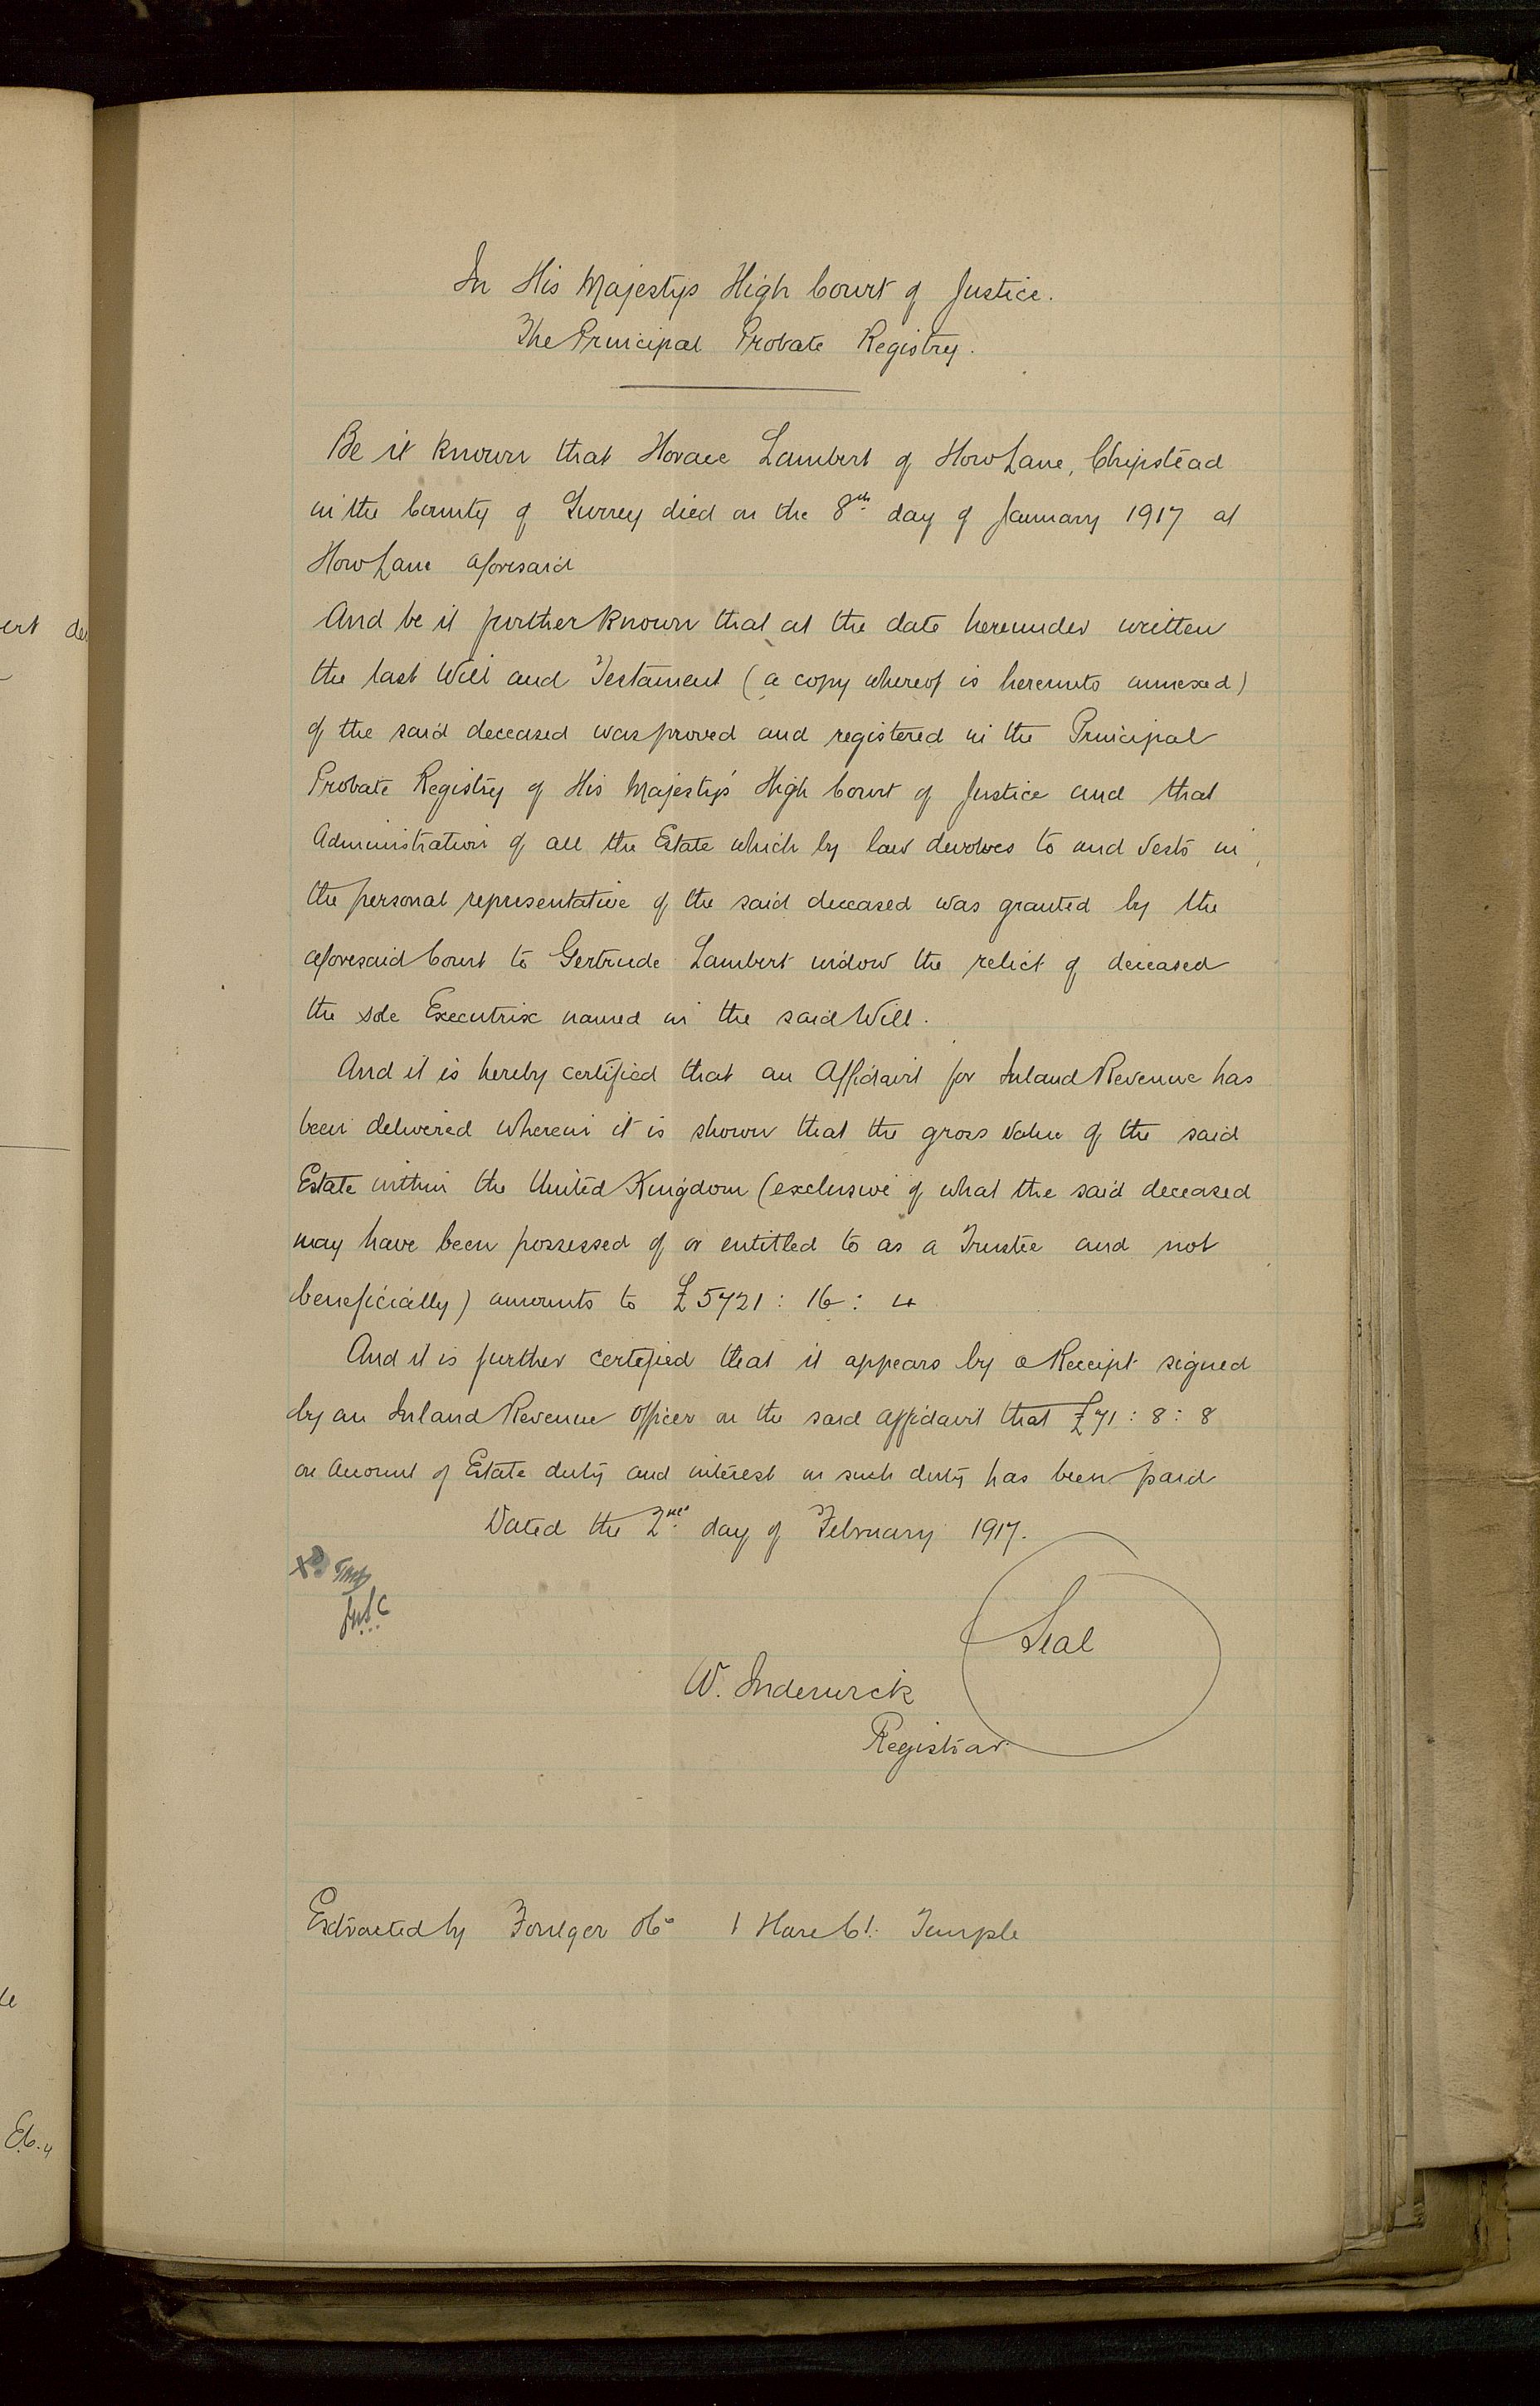 In His Majestys High Court of Justice.
The Principal Probate Registry.
Be it known that Horace Lambert of How Lane, Chipstead
in the County of Surrey died on the 8th day of January 1917 at
How Lane aforesaid
And be it further known that at the date hereunder written
the last Will and Testament (a copy whereof is hereunto annexed)
of the said deceased was proved and registered in the Principal
Probate Registry of His Majesty's High Court of Justice and that
Administration of all the Estate which by law devolves to and vests in
the personal representative of the said deceased was granted by the
aforesaid Court to Gertrude Lambert widow the relict of deceased
the sole Executrix named in the said Will.
And it is hereby certified that an Affidavit for Inland Revenue has
been delivered wherein it is shown that the gross value of the said
Estate within the United Kingdom (exclusive of what the said deceased
may have been possessed of or entitled to as a Trustee and not
beneficially) amounts to £5721 : 16 : 4
And it is further certified that it appears by a Receipt signed
by an Inland Revenue Officer on the said affidavit that £71 : 8 : 8
on account of Estate duty and interest on such duty has been paid
Dated the 2nd day of February 1917.
Seal
W. Inderwick
Registrar.
Extracted by Foulger & Co 1 Hare Ct. Temple